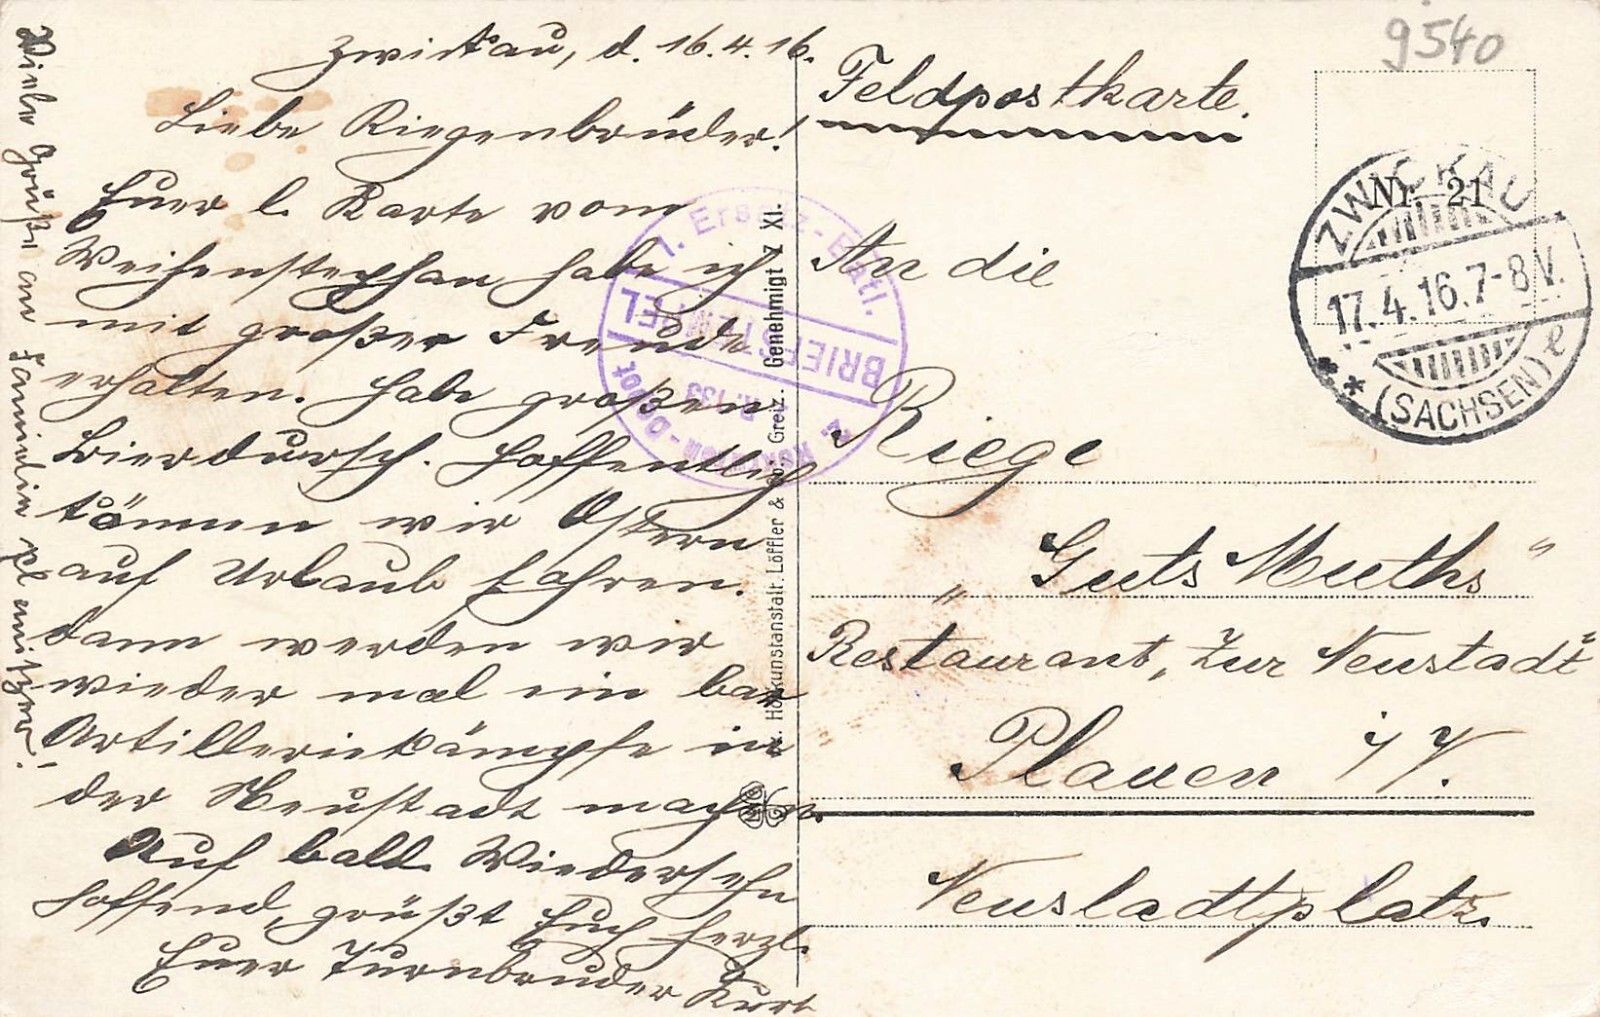 9540
Zwickau, d. 16.4.16.
Liebe Riegenbrüder!
Euer l. Karte vom
Weihenstephan habe ich
mit großer Freude
erhalten. Habe großen
Bierdursch. Hoffentlich
können wir Ostern
auf Urlaub fahren.
dann werden wir
wieder mal ein bar
Artilleriekämpfe in
der Neustadt machen.
Auf bald. Wiedersehn
hoffend, grüßt Euch herzl.
Euer Turnbruder Kurt
Viele Grüße an Familie
Feldpostkarte.
An die
Riege
„Guts Muths“
Restaurant „Zur Neustadt“
Plauen i/V.
Neustadtplatz.
Nr. 21
ZWICKAU
17.4.16.7-8 V.
* * (SACHSEN) e
1. Ersatz-Batl.
BRIEFSTEMPEL
R. 133
z. Rekruten-Depot
Hofkunstanstalt. Löffler & Co. Greiz. Genehmigt Z XI.